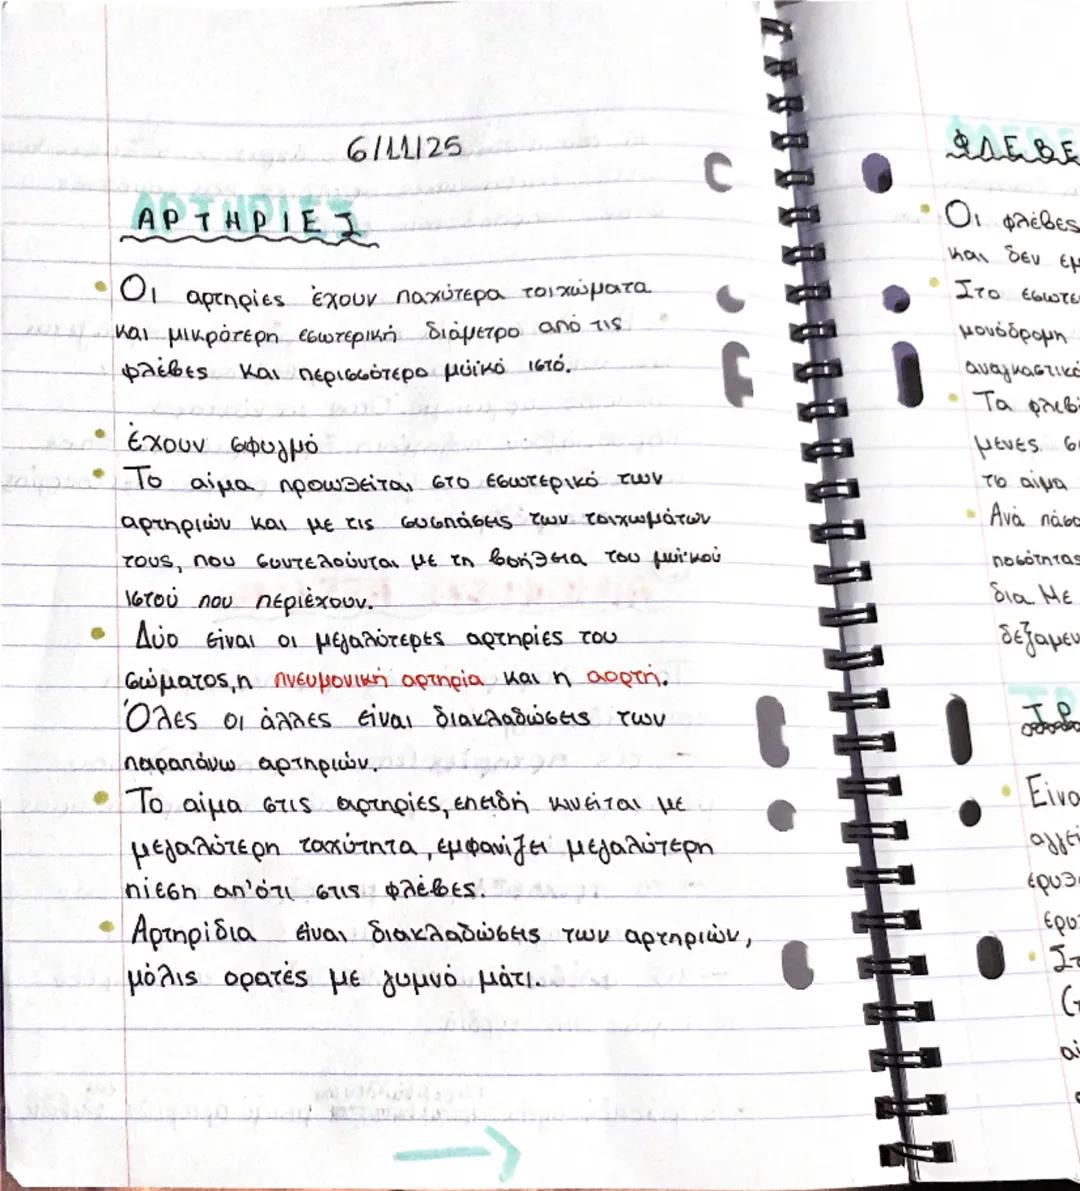 6/11/25
ΑΡΤΗΡΙΕΣ
• Οι αρτηρίες έχουν παχύτερα τοιχώματα
και μικρότερη εσωτερική διάμετρο από τις
φλέβες και περισσότερο μυϊκό ιστό.
• Έχουν σφυγμό
• Το αίμα προωθείται στο εσωτερικό των
αρτηριών και με τις συσπάσεις των τοιχωμάτων
τους, που συντελούνται με τη βοήθεια του μυϊκού
ιστού που περιέχουν.
• Δύο είναι οι μεγαλύτερες αρτηρίες του
σώματος, η πνευμονική αρτηρία και η αορτή.
Όλες οι άλλες είναι διακλαδώσεις των
παραπάνω αρτηριών.
• Το αίμα στις αρτηρίες, επειδή κινείται με
μεγαλύτερη ταχύτητα, εμφανίζει μεγαλύτερη
πίεση απ'ότι στις φλέβες.
• Αρτηρίδια είναι διακλαδώσεις των αρτηριών,
μόλις ορατές με γυμνό μάτι.
ΦΛΕΒΕ
• Οι φλέβες
και δεν εμ
• Στο εσωτε
μονόδρομη
αναγκαστικά
• Τα φλεβί
μενες
το αίμα
• Ανά πάσα
ποσότητας
δια Με
δεξαμεν
• Είνα
αγγεί
ερυθ